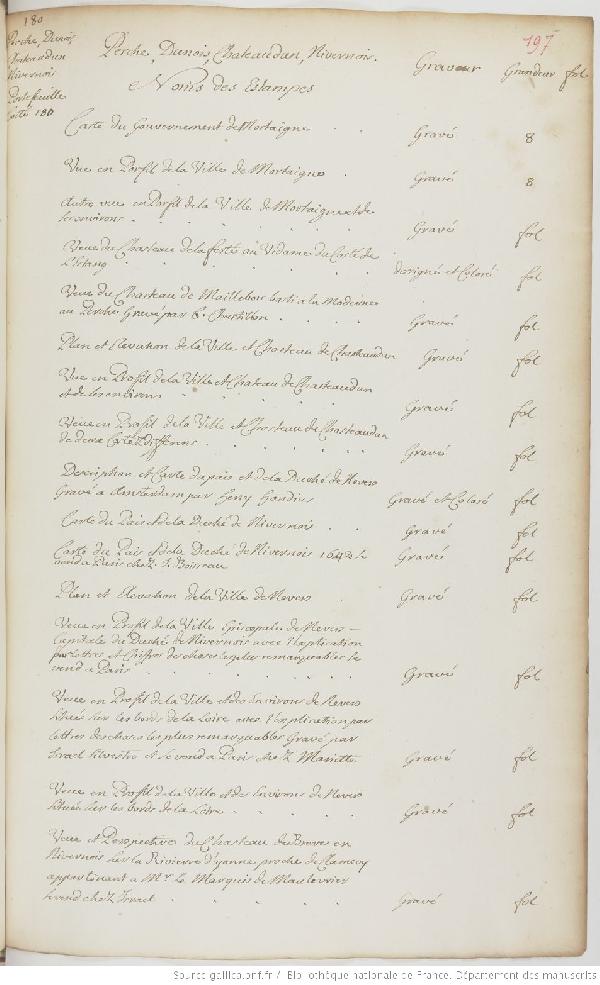 180
197
Perche, Dunois,
Chateaudun
Nivernois
Portefeuille
Cotté 180
Perche, Dunois, Chateaudun, Nivernois.
Noms des Estampes
Graveur Grandeur fol
Carte du Gouvernement de Mortaigne . Gravé 8
Vue en Porfil de la Ville de Mortaigne . Gravé 8
Autre vue en Porfil de la Ville de Mortaigne et de
ses environs . . . . . . Gravé fol
Veue du Chasteau de la ferté au Vidame du Costé de
L'Etang . . . . . . dessigné et Coloré fol
Veue du Chasteau de Maillebois basti a la Moderne
au Perche Gravé par C. Chastillon . . . Gravé fol
Plan et Elevation de la Ville et Chasteau de Chasteaudun Gravé fol
Vue en Profil de la Ville et Chateau de Chasteaudun
et de les environs . . . . . Gravé fol
Veue en Profil de la Ville et Chasteau de Chasteaudun
de deux Costé differens . . . . . Gravé fol
Description et Carte d'apais et de la Duché de Nevers
Gravé a Amsterdam par Henry Hondius Gravé et Coloré fol
Carte du Pais et de la Duché de Nivernois . . Gravé fol
Carte du Pais et de la Duché de Nivernois 1643 se
vend a Paris chez J. Boisseau Gravé fol
Plan et Elevation de la Ville de Nevers . Gravé fol
Veue en Profil de la Ville Episcopale de Nevers
Capitale du Duché de Nivernois avec l'explication
par lettres et chiffres de choses les plus remarquables se
vend a Paris . . . . . . Gravé fol
Veue en Profil de la Ville et des Environs de Nevers
située sur les bords de la Loire avec l'explication par
lettres des choses les plus remarquables Gravé par
Israel Silvestre et se vend a Paris chez Mariette . Gravé fol
Veue en Profil de la Ville et des Environs de Nevers
située sur les bords de la Loire . . . . Gravé fol
Veue et Perspective du Chasteau de Breves en
Nivernois sur la Riviere d'yonne proche de Clamecy
appartenant a Mr. Le Marquis de Maulevrier
se vend chez Israel . . . . . Gravé fol
Source gallica.bnf.fr / Bibliothèque nationale de France. Département des manuscrits